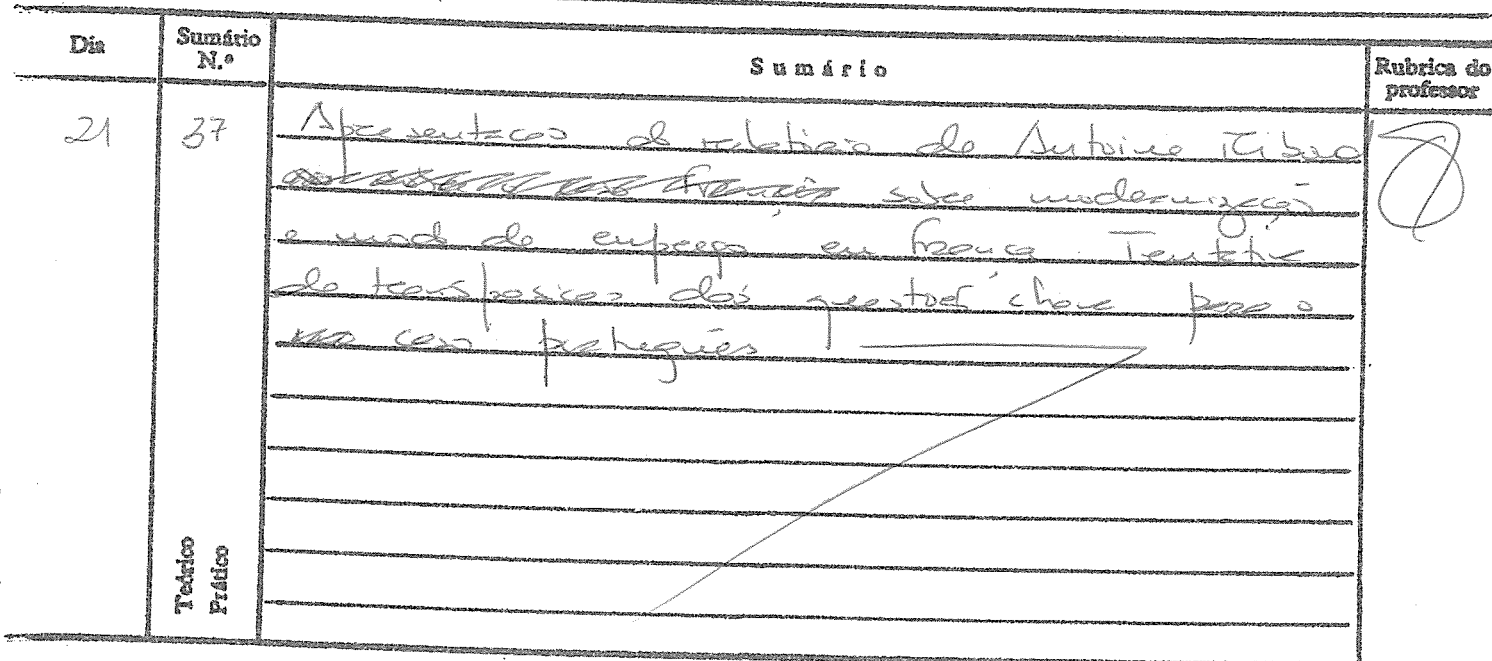 Dia
Sumário N.º
Sumário
Rubrica do professor
21
37
Apresentação do relatório de Antoine Riboud
sobre modernização
e modo de emprego em França. Tentativa
de transposição das questões chave para o
caso português
Teórico
Prático